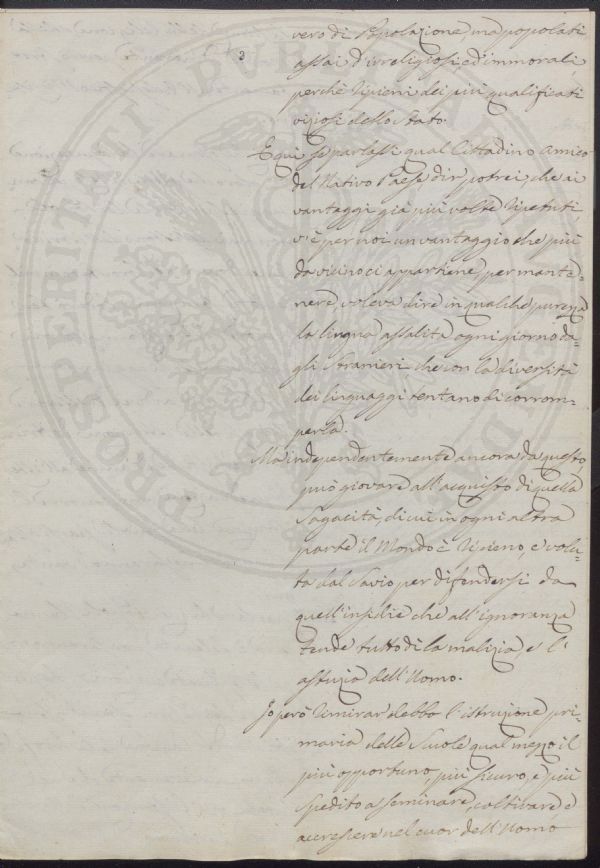 3
vero di Popolazione, ma popolati
assai d'irreligiosi, ed immorali,
perchè ripieni dei più qualificati
viziosi dello Stato.
E quì se parlassi qual Cittadino amico
del Nativo Paese dir potrei, che ai
vantaggi già più volte ripetuti,
v'è per noi un vantaggio che più
da vicino ci appartiene, per mante=
nere, voleva dire in qualche purezza
la lingua assalita ogni giorno da=
gli Stranieri che con la diversità
dei linguaggi tentano di corrom=
perla.
Ma independentemente ancora da questo,
può giovare all'acquisto di quella
Sagacità, di cui in ogni altra
parte il Mondo è ripieno, e volu=
ta dal Savio per difendersi da
quell'insidie che all'ignoranza
tende tutto dì la malizia, e l'
astuzia dell'Uomo.
Io però rimirar debbo l'istruzione pri=
maria delle Scuole qual mezzo il
più opportuno, più sicuro, e più
spedito a seminare, coltivare e
accrescere nel cuor dell'Uomo
PROSPERITATI PUBLICAE AUGENDAE